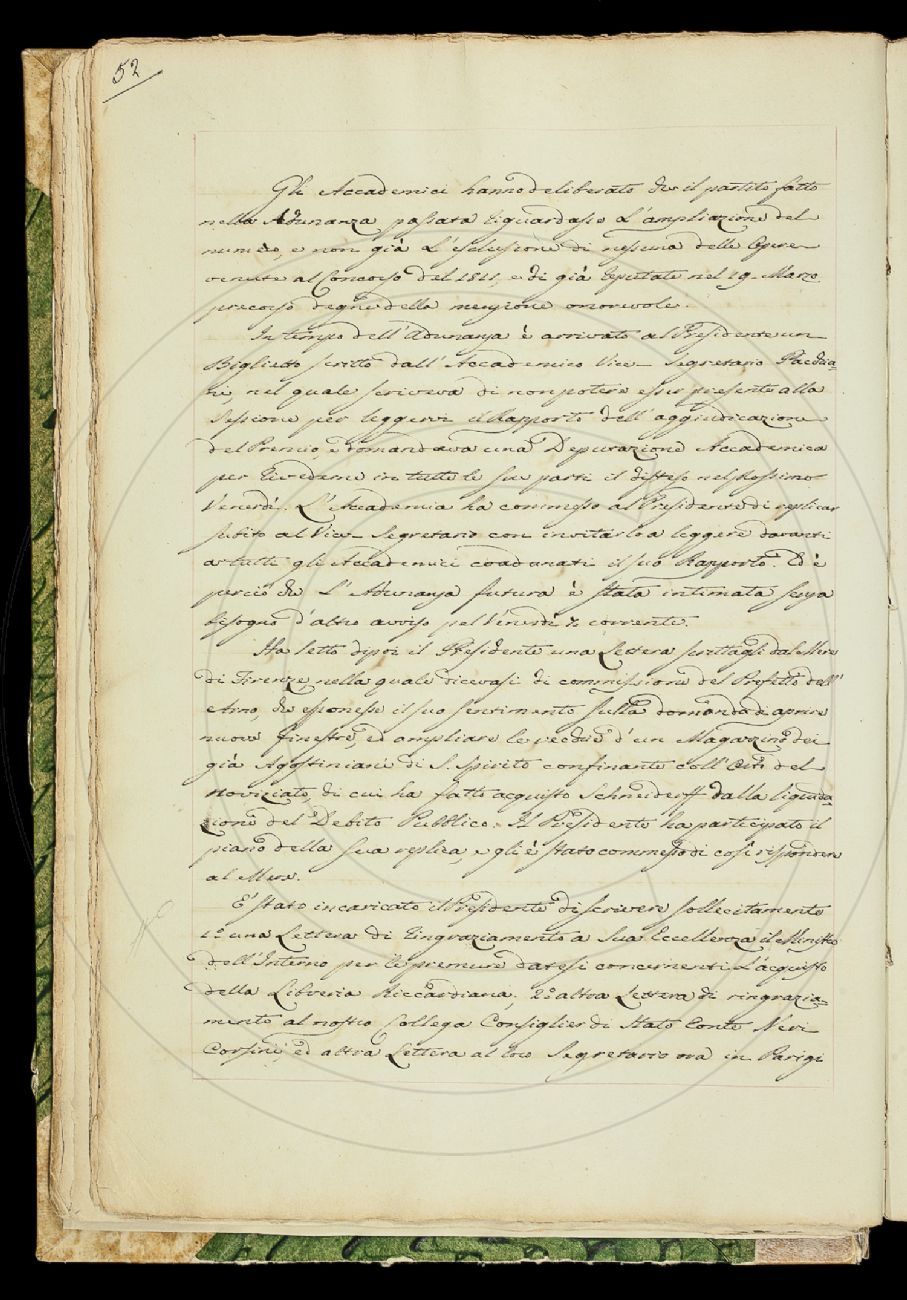 52
Gli Accademici hanno deliberato che il partito fatto
nella Adunanza passata riguardasse l'ampliazione del
numero, e non già l'esclusione di nessuna delle Opere
venute al Concorso del 1811, e di già reputate nel 19. Marzo
precorso degne della menzione onorevole.
In tempo dell'Adunanza è arrivato al Presidente un
Biglietto scritto dall'Accademico Vice-Segretario
nel quale scriveva di non potere esser presente alla
Sessione per leggervi il Rapporto dell'aggiudicazione
del Premio, e domandava una Deputazione Accademica
per rivederne in tutte le sue parti il disteso nel prossimo
Venerdì. L'Accademia ha commesso al Presidente di replicar
subito al Vice-Segretario con invitarlo a leggere davanti
a tutti gli Accademici coadunati il suo Rapporto. Ed è
perciò che l'Adunanza futura è stata intimata senza
bisogno d'altro avviso pel Venerdì corrente.
Ha letto dipoi il Presidente una Lettera scrittagli dal Mere
di Firenze, nella quale dicevasi di commissione del Prefetto dell'
Arno, che esponesse il suo sentimento sulla domanda di aprire
nuove finestre, ed ampliare le vecchie d'un Magazzino dei
già Agostiniani di S. Spirito confinante coll'Orto del
Noviziato, di cui ha fatto acquisto Schneiderff dalla liquida-
zione del Debito Pubblico. Il Presidente ha partecipato il
piano della sua replica, e gli è stato commesso di così rispondere
al Mere.
E' stato incaricato il Presidente di scrivere sollecitamente
1.° una Lettera di ringraziamento a Sua Eccellenza il Ministro
dell'Interno per le premure datesi concernenti l'acquisto
della Libreria Riccardiana; 2.° altra Lettera di ringrazia-
mento al nostro Collega Consiglier di Stato Conte Neri
Corsini, ed altra Lettera al loro Segretario ora in Parigi